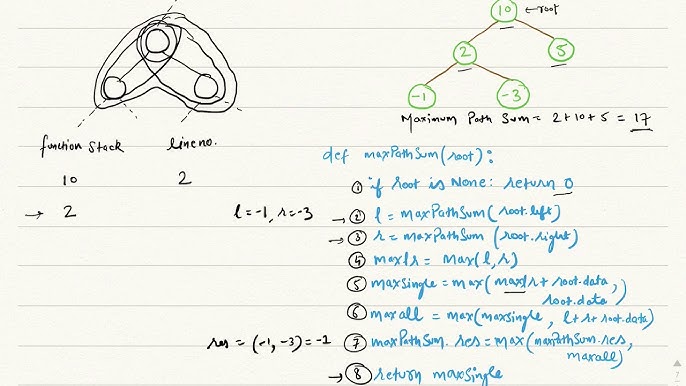 10 ← root
2
5
-1
-3
Maximum Path Sum = 2+10+5 = 17
function stack
line no.
10
2
→ 2
l = -1, r = -3
def maxPathSum(root):
① if root is None: return 0
→ ② l = maxPathSum(root.left)
→ ③ r = maxPathSum(root.right)
④ maxlr = max(l,r)
⑤ maxsingle = max(maxlr + root.data,
root.data)
⑥ maxall = max(maxsingle, l+r+root.data)
res = (-1, -3) = -1
⑦ maxPathSum.res = max(maxPathSum.res,
maxall)
→ ⑧ return maxsingle